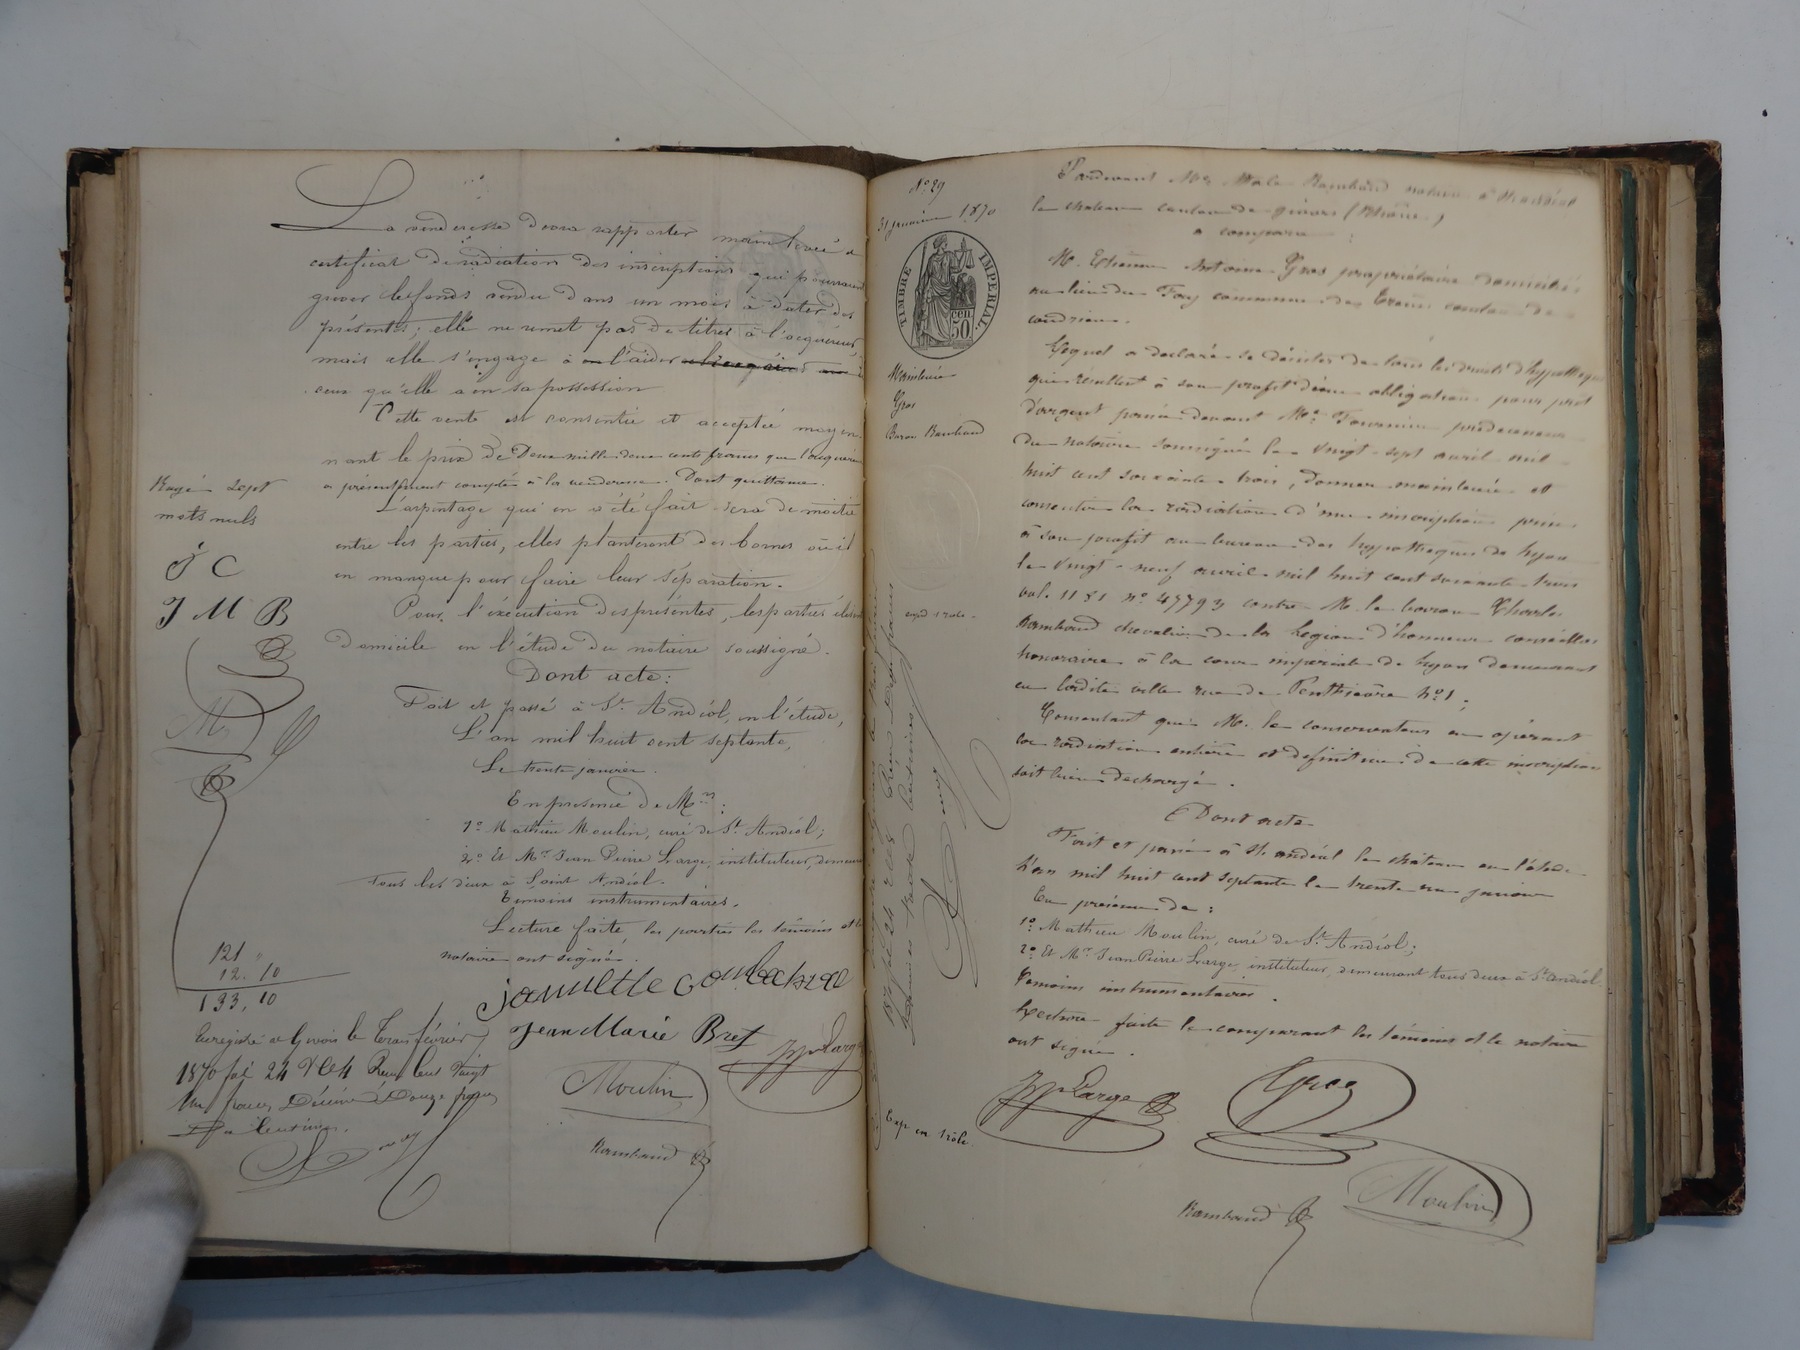 La venderesse devra rapporter main levée &
certificat de radiation des inscriptions qui pourraient
grever le fonds vendu dans un mois à dater des
présentes; elle ne remet pas de titres à l'acquéreur
mais elle s'engage à l'aider
ceux qu'elle a en sa possession
Cette vente est consentie et acceptée moyen
nant le prix de Deux mille deux cents francs que l'acquéreur
a présentement compté à la venderesse. Dont quittance.
L'arpentage qui en a été fait sera de moitié
entre les parties, elles planteront des bornes où il
en manque pour faire leur séparation.
Pour l'éxécution des présentes, les parties élisent
domicile en l'étude du notaire soussigné.
Dont acte:
Fait et passé à St. Andéol, en l'étude,
L'an mil huit cent septante,
Le trente janvier.
En présence de Mrs:
1o Mathieu Moulin, curé de St. Andéol;
2o Et Mr Jean Pierre Large, instituteur, demeurant
tous les deux à Saint Andéol.
Témoins instrumentaires.
Lecture faite, les parties les témoins et le
notaire ont signé.
Rayé sept
mots nuls
J C
J M B
M
121 "
12. 10
133, 10
Jean Marie Bret
JP Large
Moulin
Rambaud
Enregistré à Givors le trois février
1870 fol 24 Vo C4 Reçu cent vingt
un francs Décime Douze francs
Dix centimes.
No 29
31 janvier 1870
TIMBRE IMPERIAL
50 cen.
Mainlevée
Gros
Baron Rambaud
Exp en rôle.
Pardevant Me Rambaud notaire à St andéol
le chateau canton de givors (Rhône)
a comparu:
M. Etienne Antoine Gros propriétaire domicilié
au lieu du Fay commune des canton de
condrieu.
Lequel a déclaré se désister de tous les droits d'hypothèque
qui résultent à son profit d'une obligation pour prêt
d'argent passée devant Me. Fournier prédécesseur
du notaire soussigné le vingt-sept avril mil
huit cent soixante trois, donner mainlevée et
consentir la radiation d'une inscription prise
à son profit au bureau des hypothèques de Lyon
le vingt-neuf avril mil huit cent soixante-trois
vol. 1181 no. 47793 contre M. le baron Charles
Rambaud chevalier de la Légion d'honneur conseiller
honoraire à la cour impériale de Lyon demeurant
en ladite ville rue de Penthièvre No. 1;
Consentant que M. le conservateur en opérant
la radiation entière et définitive de cette inscription
soit bien déchargé.
Dont acte
Fait et passé à St. andéol le chateau en l'étude
L'an mil huit cent septante le trente un janvier
En présence de:
1o. Mathieu Moulin, curé de St. Andéol;
2o. Et Mr Jean Pierre Large, instituteur, demeurant tous deux à St andéol
Témoins instrumentaires.
Lecture faite le comparant les témoins et le notaire
ont signé.
JP Large
Gros
Moulin
Rambaud